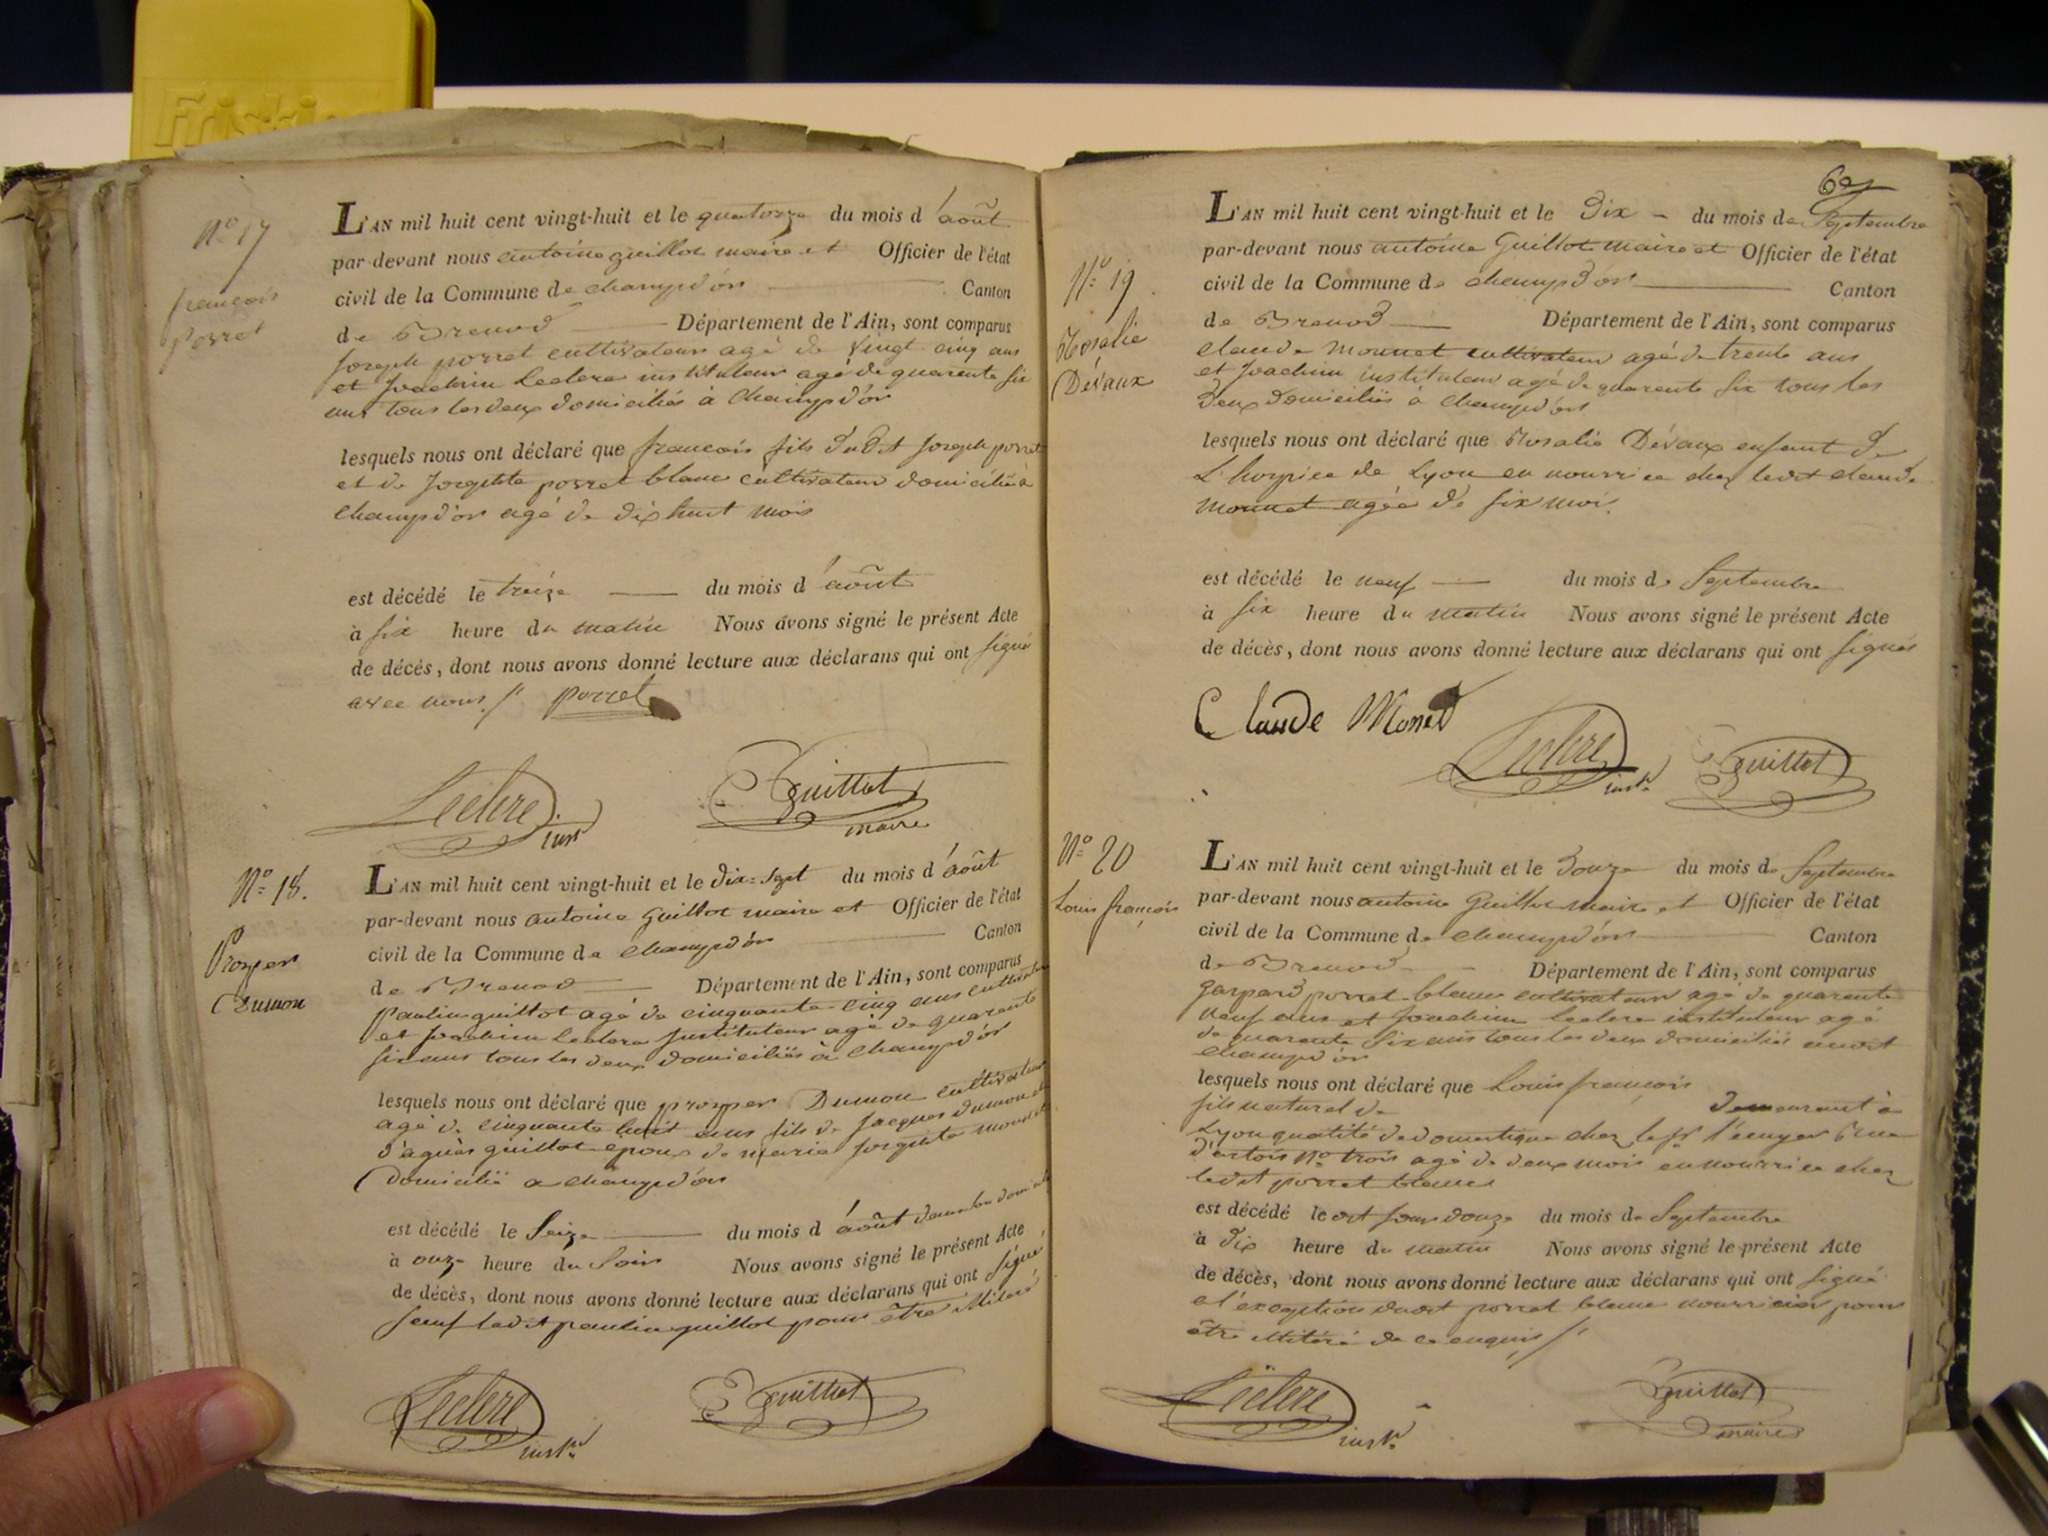 Friskies
N.º 17
françois
Porret
L'AN mil huit cent vingt-huit et le quatorze du mois d'août
par-devant nous antoine guillot maire et Officier de l'état
civil de la Commune de champd'or Canton
de Brenod Département de l'Ain, sont comparus
Joseph porret cultivateur agé de vingt cinq ans
et Joachim Leclere instituteur agé de quarente six
ans tous les deux domiciliés à Champd'or
lesquels nous ont déclaré que françois fils dudit Joseph porret
et de Josephte porret blanc cultivateur domicilié à
champd'or agé de dix huit mois
est décédé le treize du mois d'août
à six heure du matin Nous avons signé le présent Acte
de décès, dont nous avons donné lecture aux déclarans qui ont signé
avec nous porret
Leclere inst.r
Guillot
maire
N.º 18.
Prosper
Dumon
L'AN mil huit cent vingt-huit et le dix-sept du mois d'août
par-devant nous antoine Guillot maire et Officier de l'état
civil de la Commune de champd'or Canton
de Brenod Département de l'Ain, sont comparus
Paulin guillot agé de cinquante cinq ans cultivateur
et Joachim Leclere Instituteur agé de quarente
six ans tous les deux domiciliés à Champd'or
lesquels nous ont déclaré que prosper Dumon cultivateur
agé de cinquante huit ans fils de Jacques dumon et
d'agnès guillot epoux de marie Josephte
Domicilié a champd'or
est décédé le Seize du mois d'août dans son domicile
à onze heure du Soir Nous avons signé le présent Acte
de décès, dont nous avons donné lecture aux déclarans qui ont signé
sauf ledit paulin guillot pour être illiteré
Leclere inst.r
Guillot
L'AN mil huit cent vingt-huit et le Dix du mois de Septembre
par-devant nous antoine Guillot maire et Officier de l'état
N.º 19
civil de la Commune de champd'or Canton
de Brenod Département de l'Ain, sont comparus
Rosalie
Dévaux
claude Monnet cultivateur agé de trente ans
et Joachim instituteur agé de quarente six tous les
deux domiciliés a champd'or
lesquels nous ont déclaré que Rosalie Dévaux enfant de
L'hospice de Lyon en nourrice chez ledit claude
Monnet agée de six moi.
est décédé le neuf du mois de Septembre
à six heure du matin Nous avons signé le présent Acte
de décès, dont nous avons donné lecture aux déclarans qui ont signés
Claude Monet
Leclere inst.r
Guillot
N.º 20
Louis françois
L'AN mil huit cent vingt-huit et le Douze du mois de Septembre
par-devant nous antoine Guillot maire et Officier de l'état
civil de la Commune de champd'or Canton
de Brenod Département de l'Ain, sont comparus
gaspard porret blanc cultivateur agé de quarente
neuf ans et Joachim Leclere instituteur agé
de quarente Six ans tous les deux domiciliés audit
champd'or
lesquels nous ont déclaré que Louis françois
fils naturel de demeurant à
Lyon qualité de domestique chez le sr l'écuyer Rue
d'artois N.º trois agé de deux mois en nourrice chez
ledit porret blanc
est décédé le dit jour douze du mois de Septembre
à dix heure du matin Nous avons signé le présent Acte
de décès, dont nous avons donné lecture aux déclarans qui ont signé
a l'exception dudit porret blanc nourricier pour
être illiteré de ce enquis
Leclere inst.r
Guillot
maire